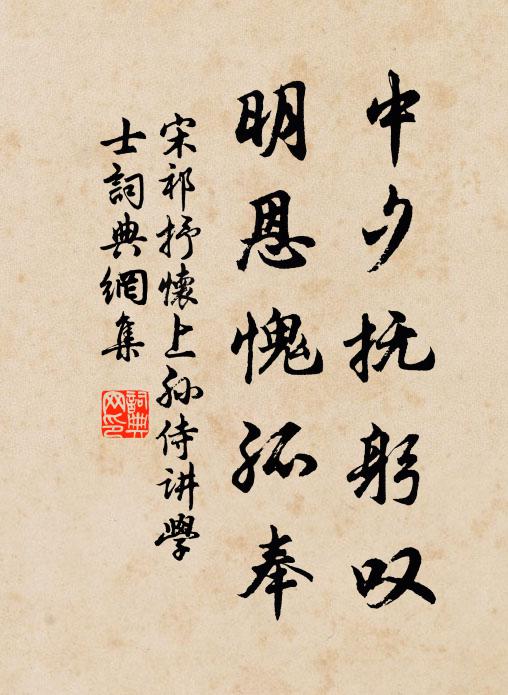 中夕抚躬叹
明恩愧孤奉
宋祁抒懷上孙侍讲學
士詞典網集
詞典
网印